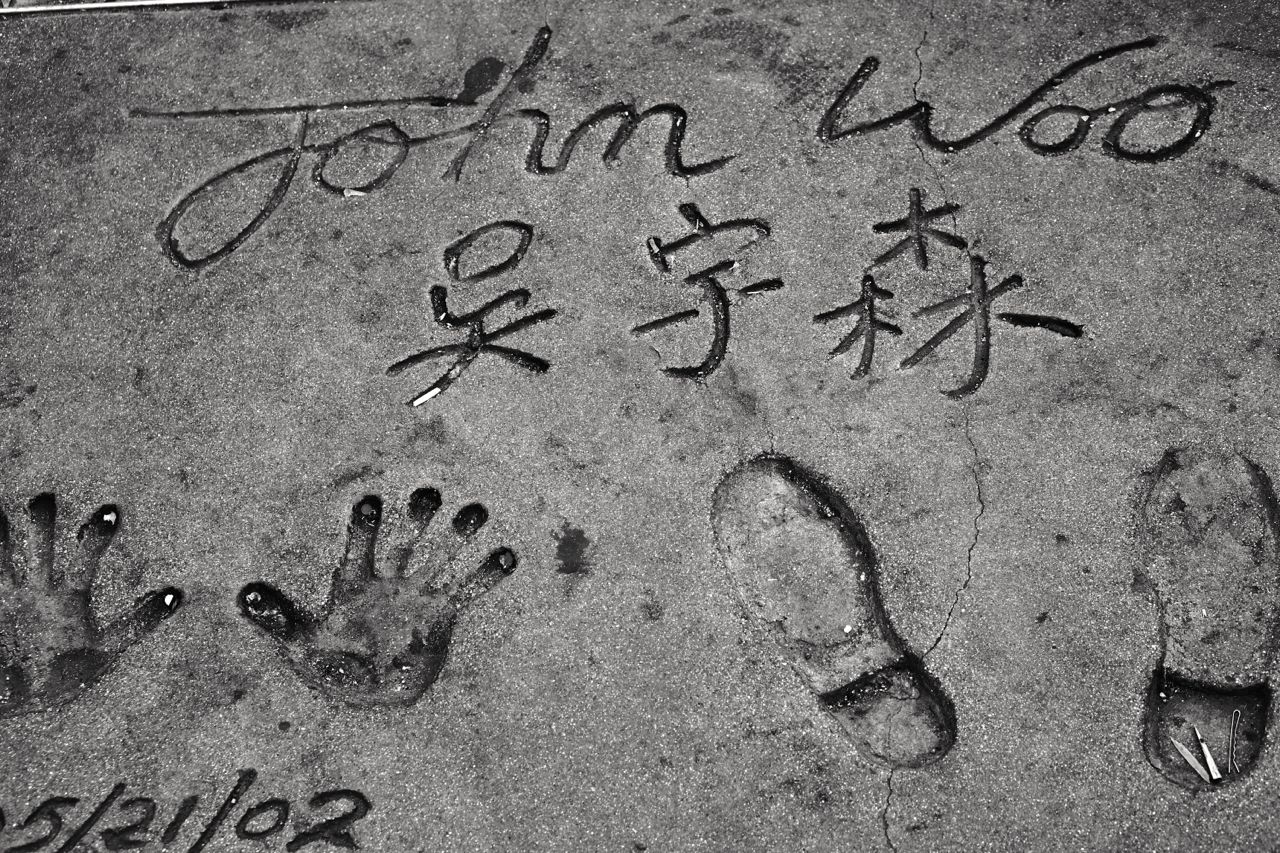 John Woo
吳宇森
05/21/02